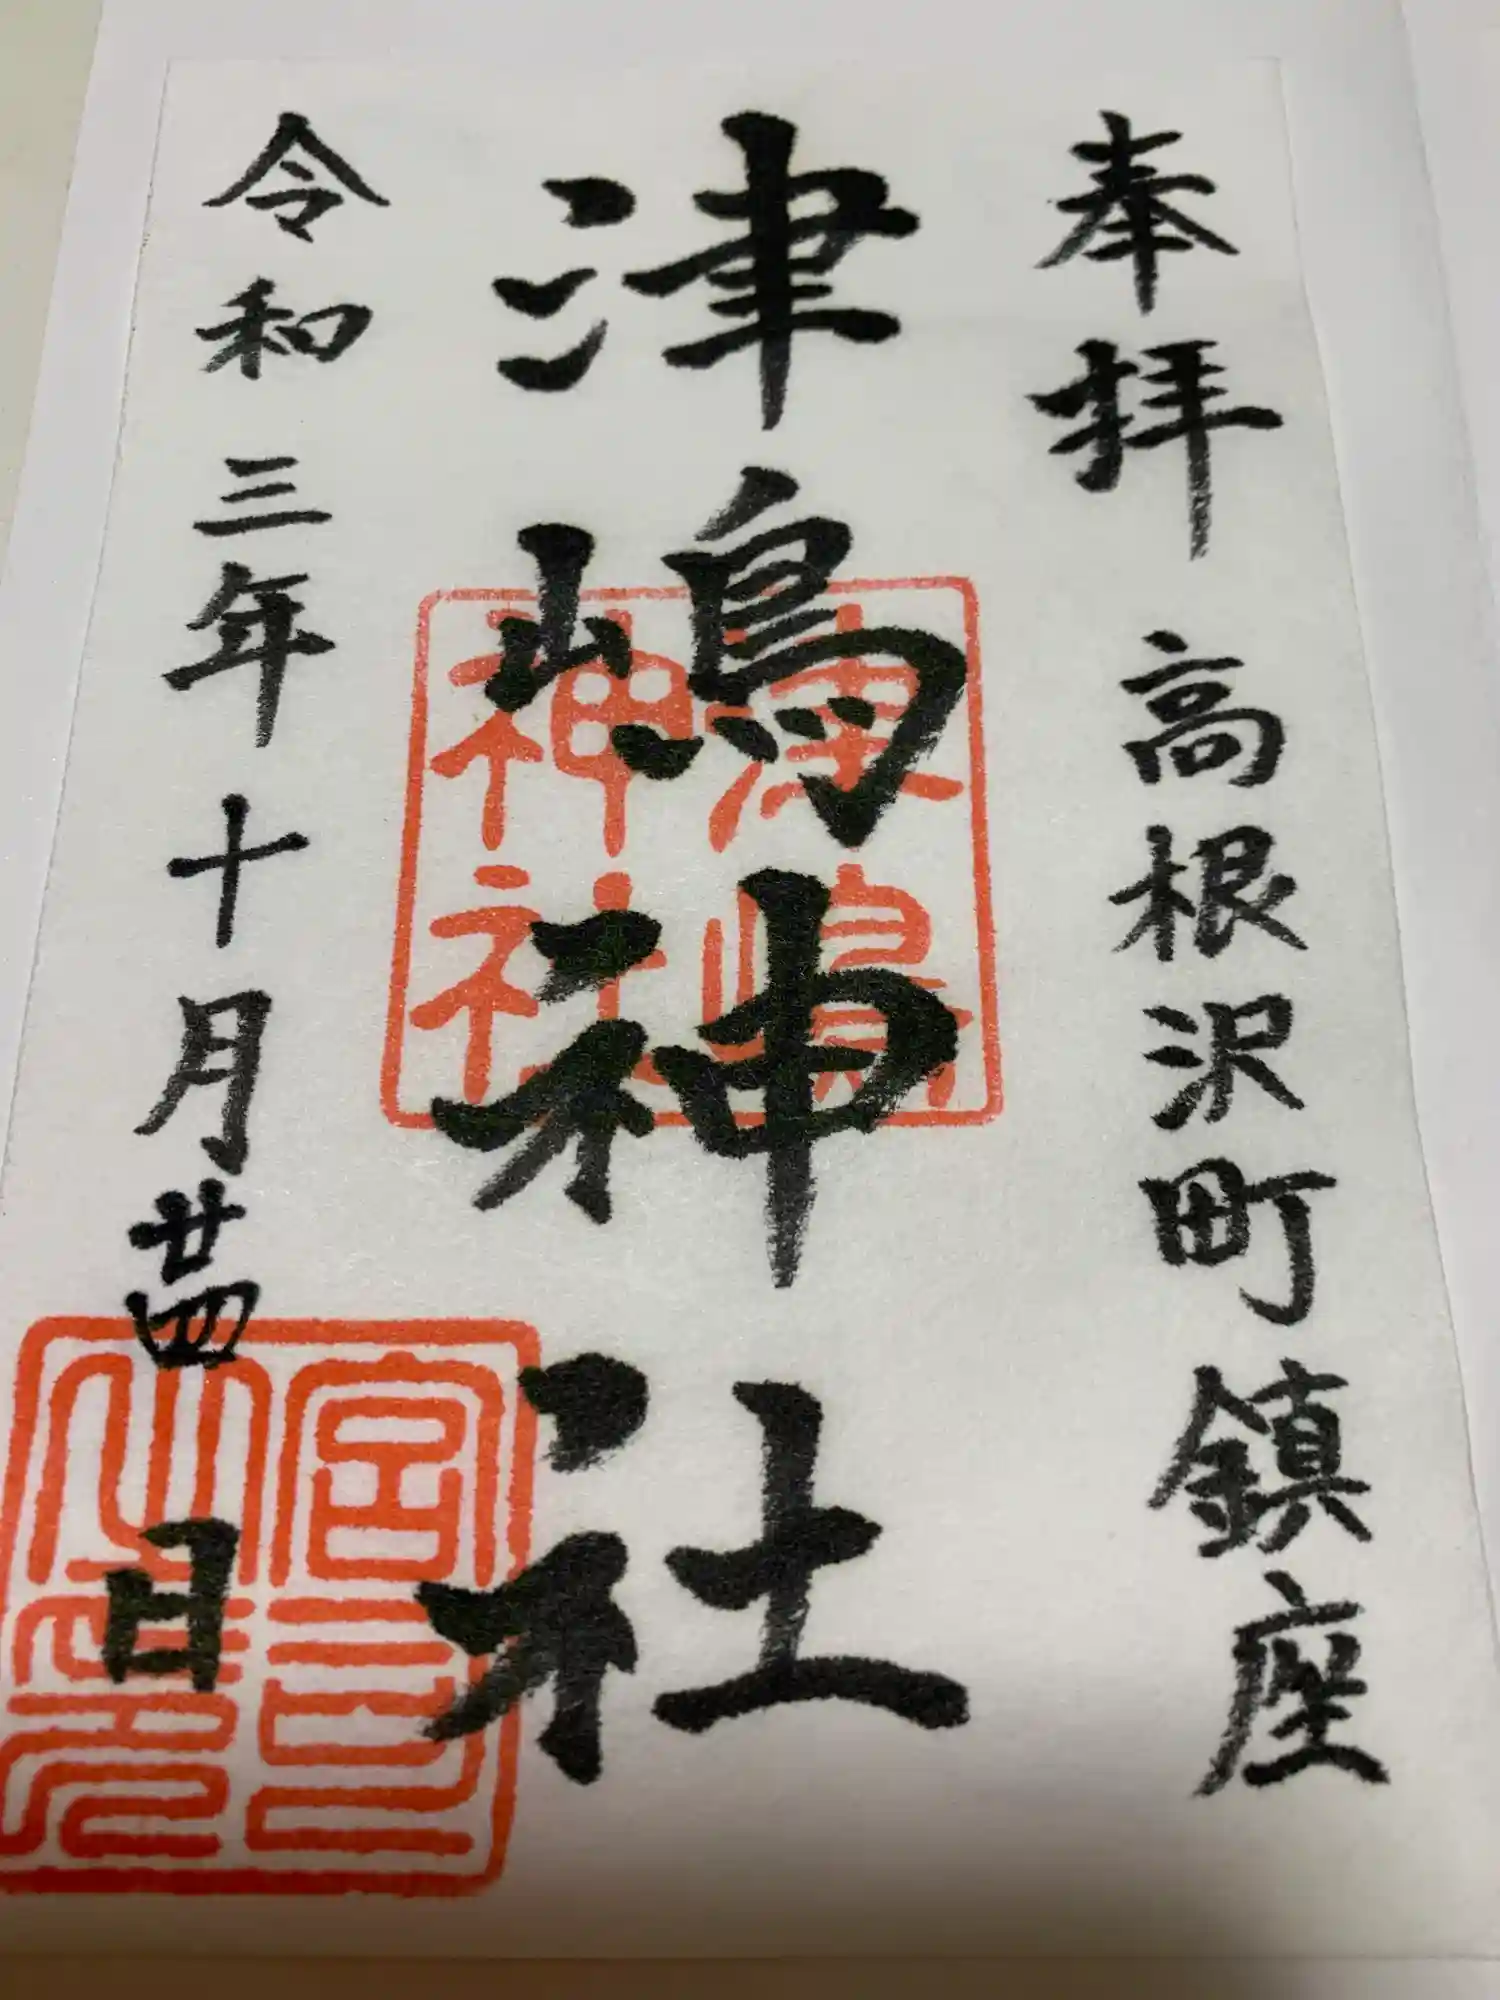 奉拝 高根沢町鎮座
津嶋神社
令和三年十月廿四日
津嶋
神社
宮司
之印